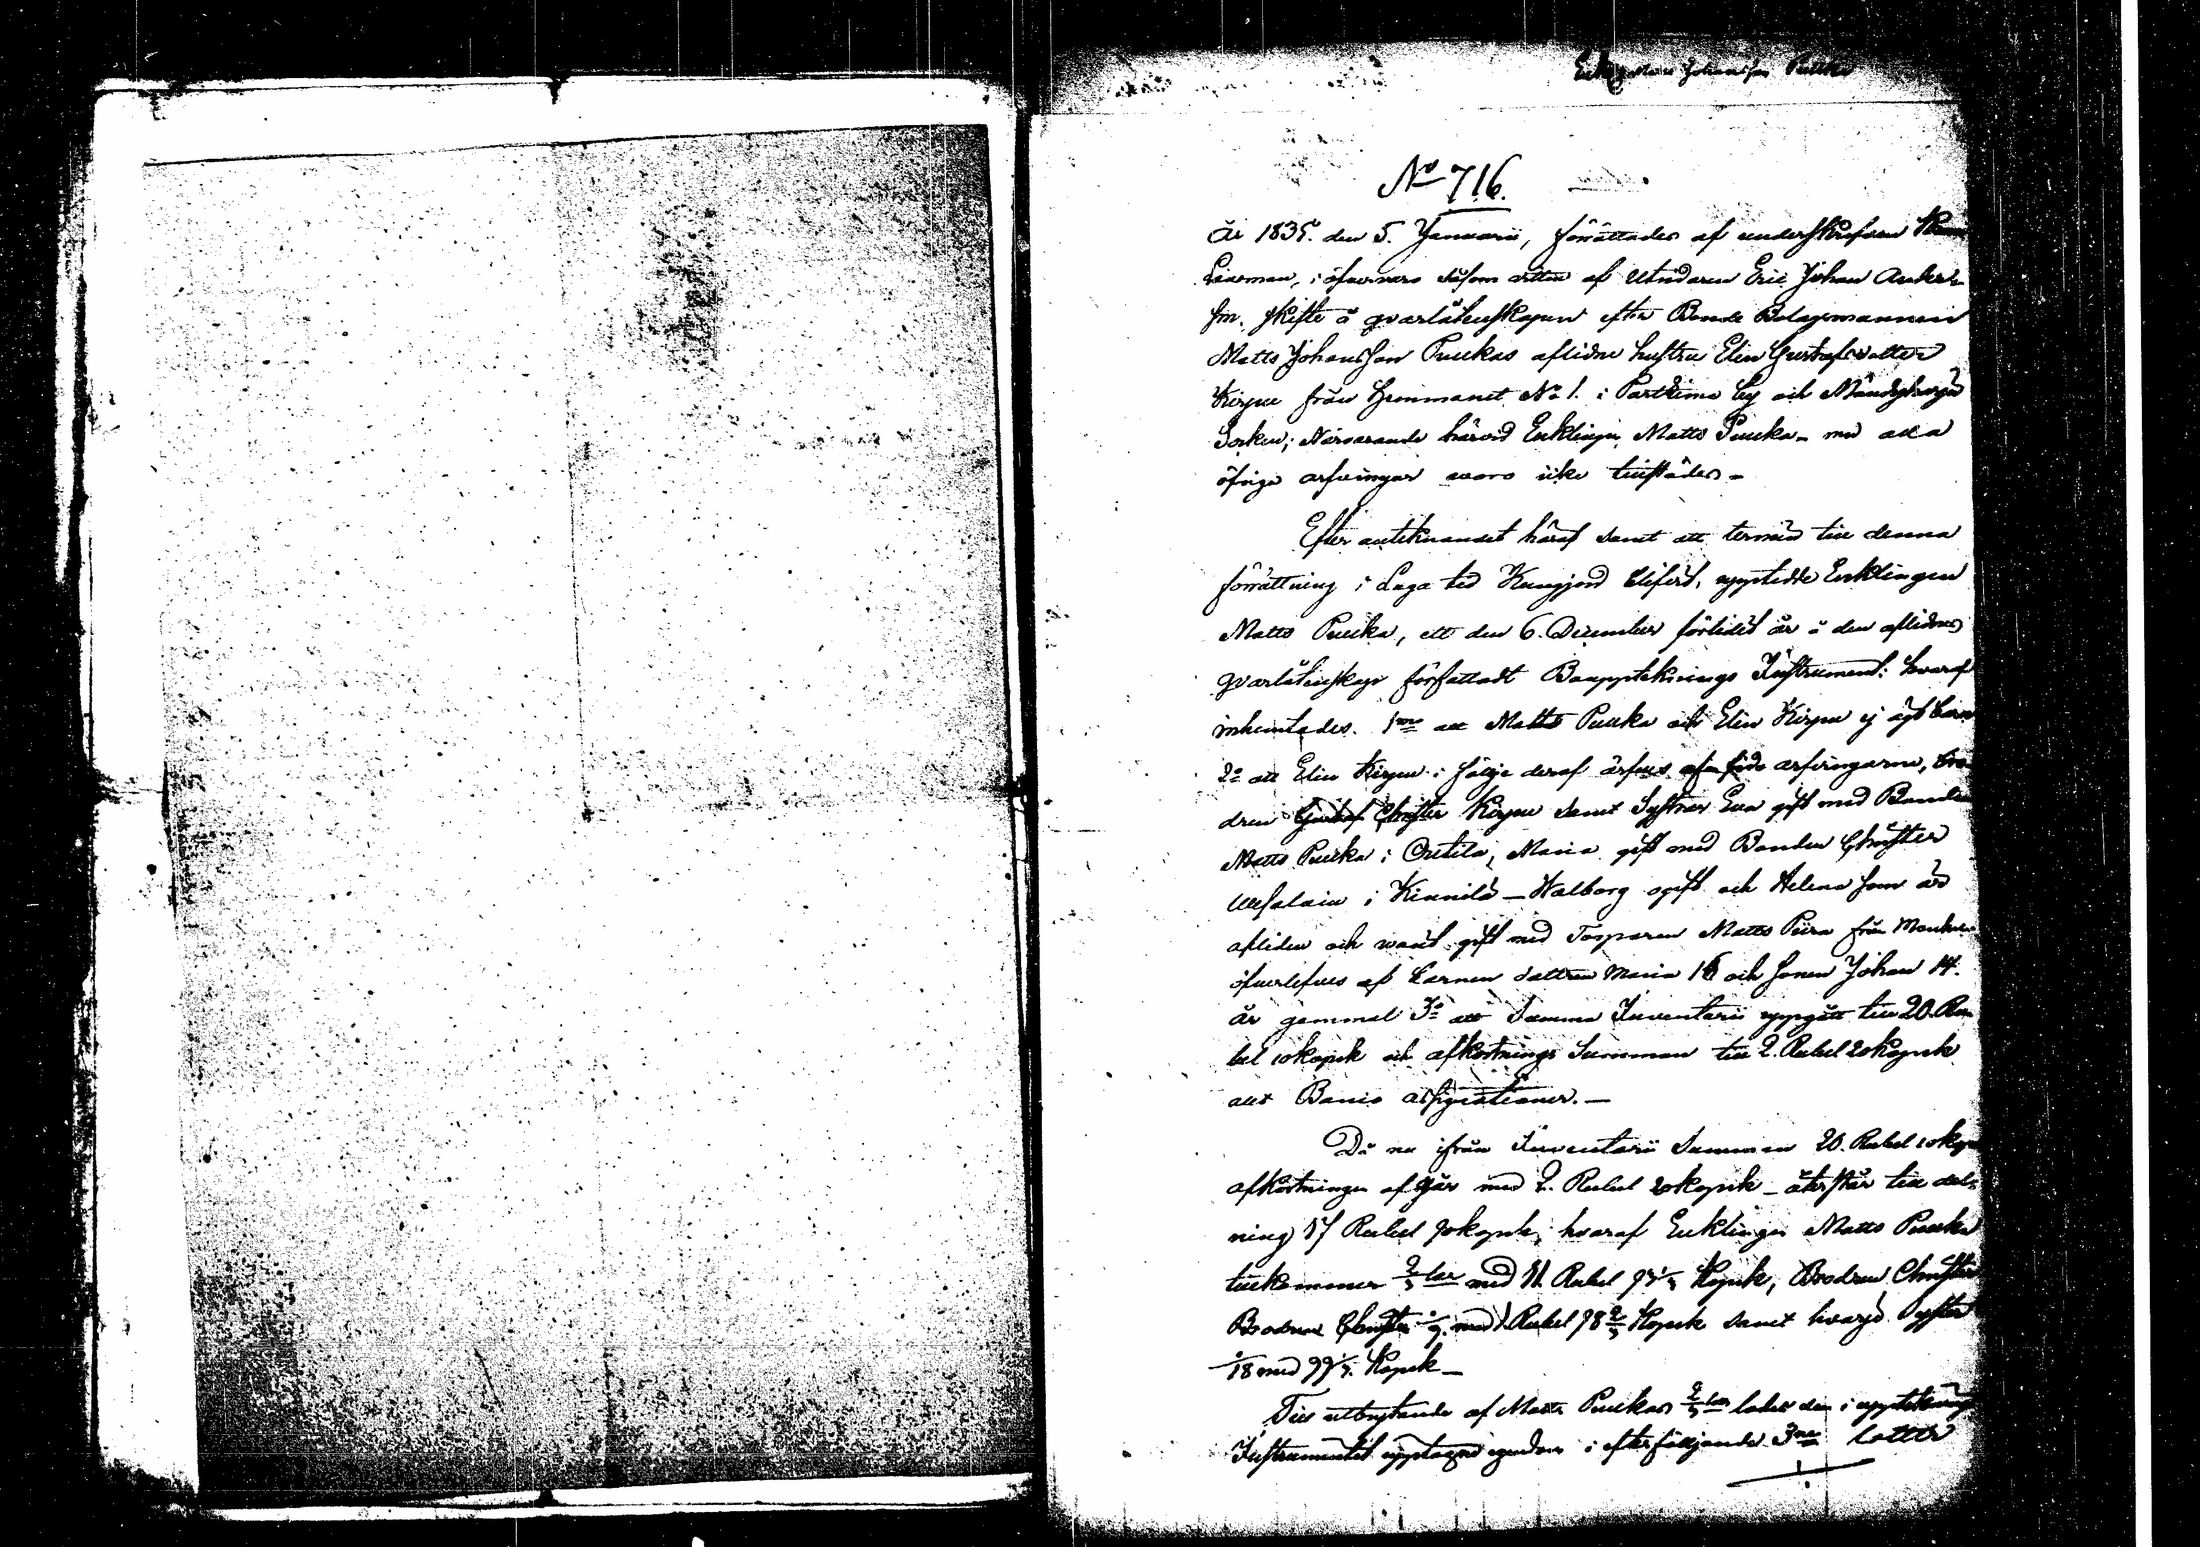 Matts Johansson Puukka
No 716.
År 1835. den 5. Januarii, förrättades af underskrefven
Länsman, i öfvervaro såsom vittne af Utridaren Eric Johan Anders-
son. skifte å qvarlåtenskapen efter Bonde Bolagsmannen
Matts Johansson Puukkas aflidne hustru Elin Gustafsdotter
Kirppu från Hemmanet No 1. i Parkkima by och Mändyharju
Socken; Närvarande härvid Enklingen Matts Puukka men alla
öfriga arfvingar voro icke tillstädes.-
Efter anteknandet häraf samt att termin till denna
förrättning i Laga tid Kungjord blifvit, uppteddé Enklingen
Matts Puukka, ett den 6. December förledit år å den aflidnes
qvarlåtenskap författadt Boupptekninings Instrument: hvaraf
inhemtades. 1mo att Matts Puukka och Elin Kirppu ej ägt barn
2o att Elin Kirppu i följe deraf ärfves af sido arfvingarne, Bro-
dren Gustaf Christer Kirppu samt Systrar Eva gift med Bonden
Matts Puukka i Outila, Maria gift med Bonden Christer
i Kinnilä - Walborg ogift och Helena som är
afliden och varit gift med Torparen Matts Piira från
öfverlefves af barnen dottren Maria 16 och Sonen Johan 14.
år gammal 3o att Summa Inventarii uppgått till 20. Ru-
bel 10 kopek och afkortnings Summan till 2. Rubel 20 kopek
allt Banco assignationer. -
Då nu ifrån Inventarii Summan 20. Rubel 10 kopek
afkortningen afgår med 2. Rubel 20 kopek - återstår till del-
ning 17 Rubel 90 kopek, hvaraf Enklingen Matts Puukka
tillkommer 2/3 med 11. Rubel 93 1/3 Kopek, Brodren Christer
Brodren Christer 1/9. med 1. Rubel 98 Kopek samt hvarje Syster
1/18 med 99 Kopek -
Till utbrytande af Matts Puukkas 2/3 lades den i uppteknings
Instrumentet upptagne egendom i efterföljande 3ne lotter